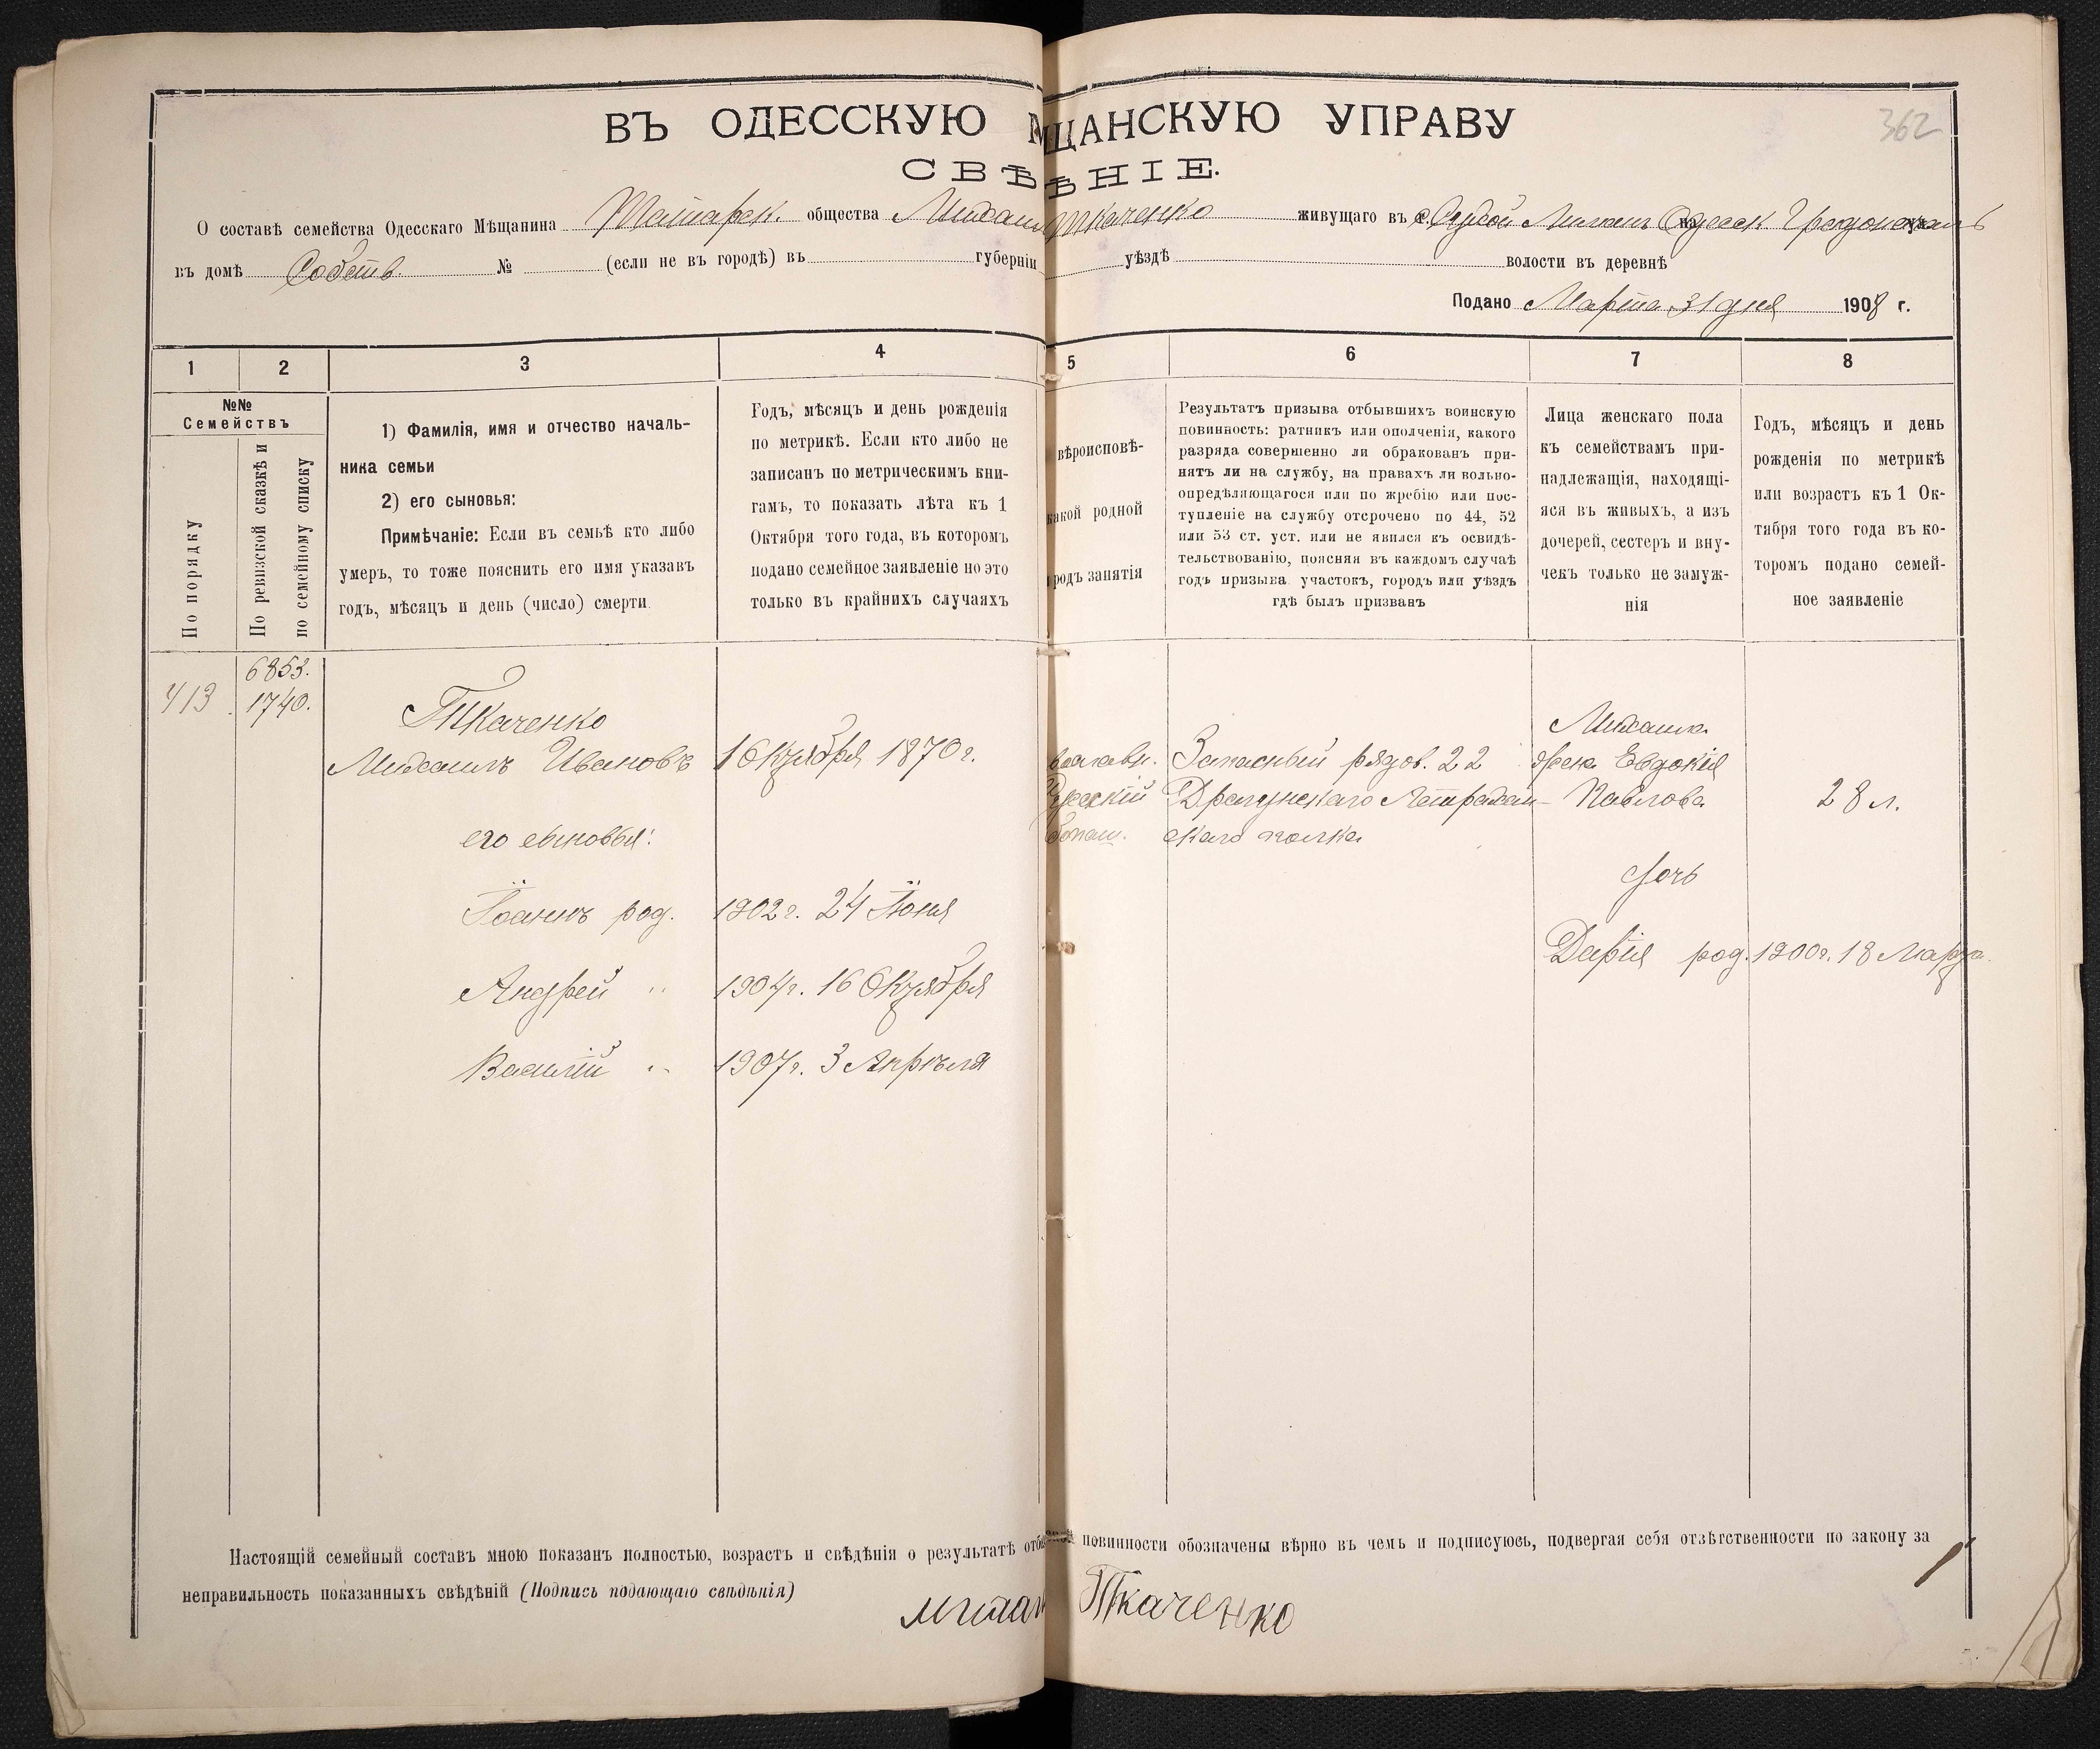 362
ВЪ ОДЕССКУЮ М ЩАНСКУЮ УПРАВУ
СВѢ ѢНІЕ.
О составѣ семейства Одесскаго Мѣщанина Татарск. общества Михаил Ткаченко живущаго въ с. Сухой Лиманъ Одесск Градоначаль
въ домѣ Собств. № (если не въ городѣ) въ губерніи уѣздѣ волости въ деревнѣ
Подано Марта 31 дня 1908 г.
1 2 3 4 5 6 7 8
№№
Семействъ
По порядку
По ревизской сказкѣ и
по семейному списку
1) Фамилія, имя и отчество началь-
ника семьи
2) его сыновья:
Примѣчаніе: Если въ семьѣ кто либо
умеръ, то тоже пояснить его имя указавъ
годъ, мѣсяцъ и день (число) смерти.
Годъ, мѣсяцъ и день рожденія
по метрикѣ. Если кто либо не
записанъ по метрическимъ кни-
гамъ, то показать лѣта къ 1
Октября того года, въ которомъ
подано семейное заявленіе но это
только въ крайнихъ случаяхъ
вѣроисповѣ-
какой родной
родъ занятія
Результатъ призыва отбывшихъ воинскую
повинность: ратникъ или ополченія, какого
разряда совершенно ли обракованъ при-
нятъ ли на службу, на правахъ ли вольно-
опредѣляющагося или по жребію или пос-
тупленіе на службу отсрочено по 44, 52
или 53 ст. уст. или не явился къ освидѣ-
тельствованію, поясняя въ каждомъ случаѣ
годъ призыва участокъ, городъ или уѣздъ
гдѣ былъ призванъ
Лица женскаго пола
къ семействамъ при-
надлежащія, находящі-
яся въ живыхъ, а изъ
дочерей, сестеръ и вну-
чекъ только не замуж-
нія
Годъ, мѣсяцъ и день
рожденія по метрикѣ
или возрастъ къ 1 Ок-
тября того года въ ко-
торомъ подано семей-
ное заявленіе
413 6853.
1740.
Ткаченко
Михаилъ Ивановъ 1 Октября 1870 г.
его сыновья:
Іоаннъ род. 1902 г. 24 Іюня
Андрей " 1904 г. 16 Октября
Василій " 1907 г. 3 Апрѣля
Русскій
Запасный рядов. 22
Драгунскаго Астрахан-
скаго полка
Михаила
жена Евдокія
Павлова 28 л.
дочь
Дарія род. 1900 г. 18 Марта
Настоящій семейный составъ мною показанъ полностью, возрастъ и свѣдѣнія о результатѣ повинности обозначены вѣрно въ чемъ и подписуюсь, подвергая себя отвѣтственности по закону за
неправильность показанныхъ свѣдѣній (Подпись подающаго свѣдѣнія)
Ткаченко